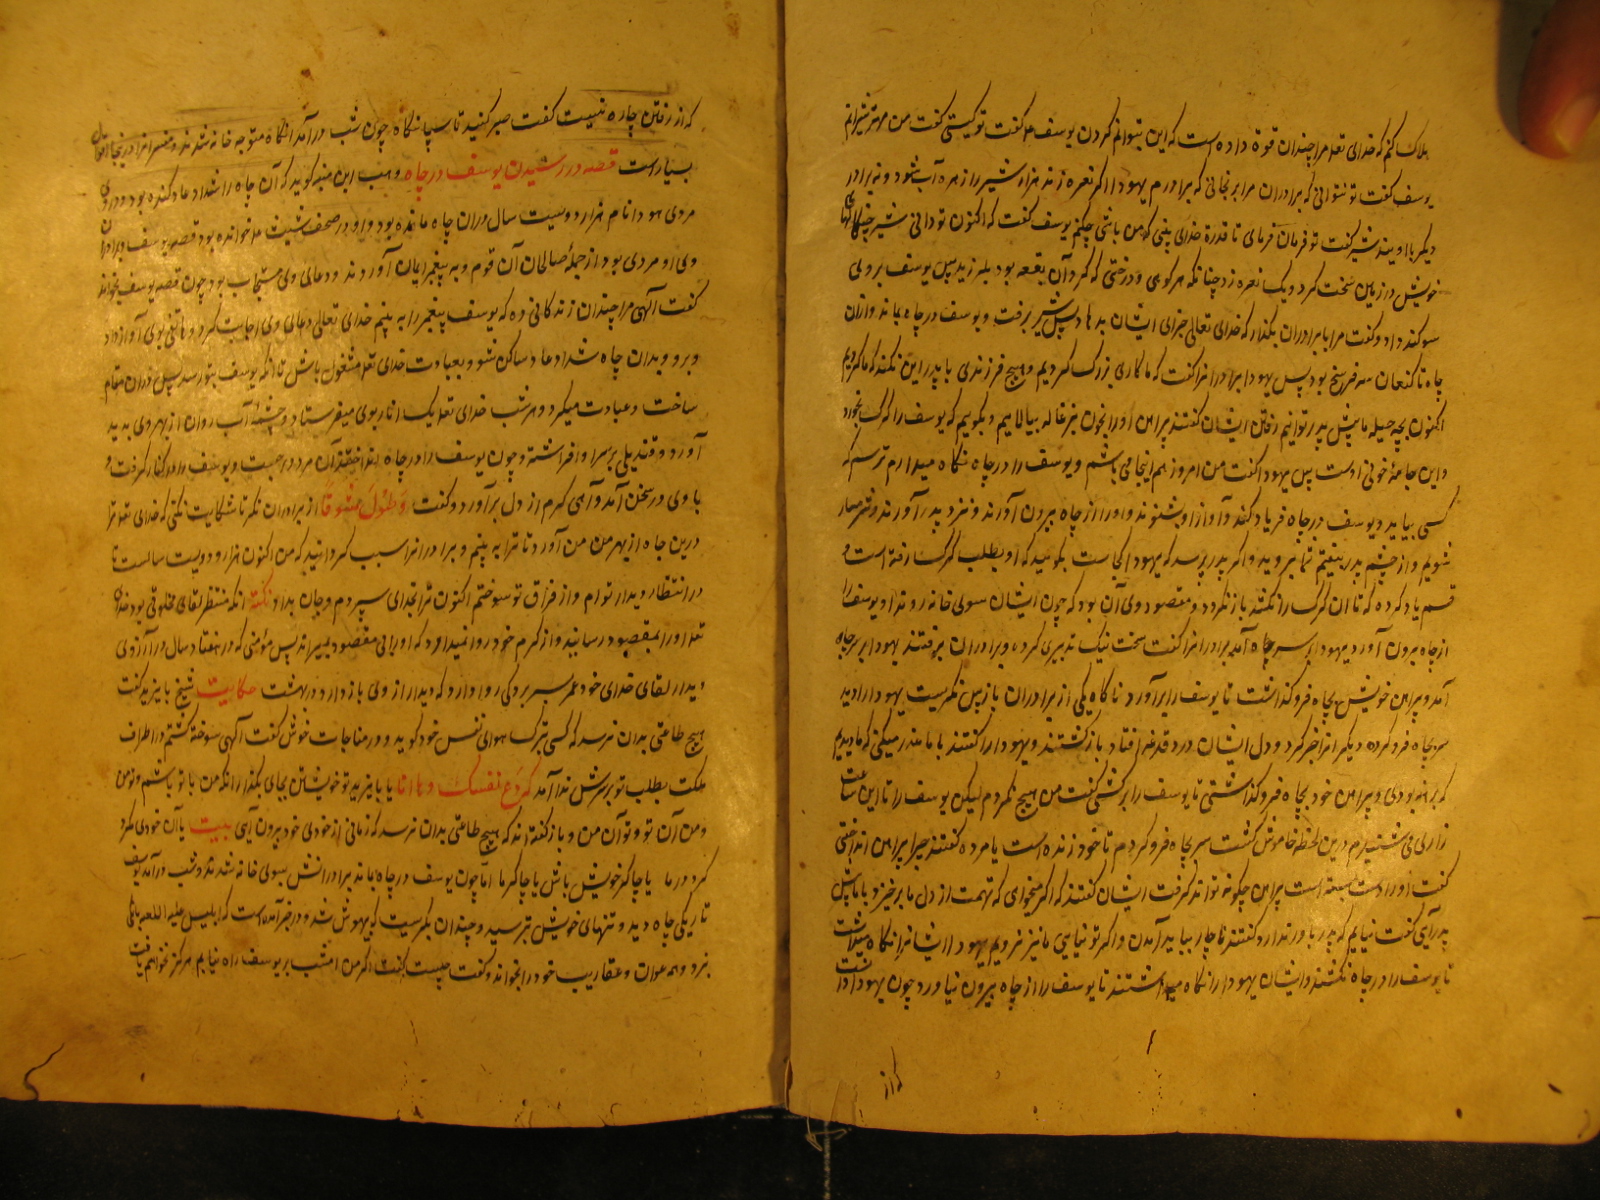 هلاک کنم که خدای تعلی مرا چندان قوة داده است که این بتوانم کردن یوسف گفت تو کیستی گفت من مهتر شیرانم
یوسف گفت تو نتوانی که برادران مرا برنجانی که برادرم یهودا اگر نعره زند هزار شیر را زهره آب شود و نه برادر
دیگر با او بیند شیر گفت تو فرمان فرمای تا قدرة خدای بینی که من با ایشان چکنم یوسف گفت که اکنون تو دانی شیر چنگالهای
خویش در زمین سخت کرد و یک نعره زد چنانکه هر کوهی و درختی که گرد آن بقعه بود بلرزید پس یوسف بر وی
سوکند داد و گفت مرا با برادران بگذار که خدای تعالی جزای ایشان بدهاد پس شیر برفت و یوسف در چاه بماند و ازان
چاه تا کنعان سه فرسنخ بود پس یهودا برادرانرا گفت که ما کاری بزرگ کردیم و هیچ فرزندی با پدر این نکند که ما کردیم
اکنون بچه حیله ما پیش پدر توانیم رفتن ایشان گفتند پیراهن او را بخون بزغاله بیالاییم و بگوییم که یوسف را گرگ بخورد
و این جامهٔ خونی اوست پس یهودا گفت من امروز هم اینجا می باشم و یوسف را در چاه نگاه میدارم ترسم که
کسی بیاید و یوسف در چاه فریاد کند و آواز او شنوند و او را از چاه بیرون آورند و نزد پدر آورند و شرمسار
شویم و از چشم پدر بیفتیم شما بروید و اگر پدر پرسد که یهودا کجاست بگوئید که او بطلب گرگ رفته است و
قسم یاد کرده که تا آن گرگ را نکشد باز نگردد و مقصود وی آن بود که چون ایشان سوی خانه روند او یوسف را
از چاه بیرون آورد یهودا بر سر چاه آمد برادرانرا گفت سخت نیک تدبیری کرده و برادران برفتند یهودا بر سر چاه
آمد و پیراهن خویش بچاه فرو گذاشت تا یوسف را برآورد ناگاه یکی از برادران باز پس نگریست یهودا را دید
سر بچاه فرو کرده دیگرانرا خبر کرد و دل ایشان در دقدغه افتاد بازگشتند و یهودا را گفتند با ما عذر میکنی که ما دیدیم
که برهنه بودی و پیراهن خود بچاه فرو گذاشتی تا یوسف را برکشی گفت من هیچ نکردم لیکن یوسف را تا این ساعت
زاری می شنیدم درین لحظه خاموش گشت سر بچاه فرو کردم تا خود زنده است یا مرده گفتند چرا پیراهن انداختی
گفت او را دست بسته است پیراهن چگونه تواند گرفت ایشان گفتند که اگر میخواهی که تهمت از دل ما برخیزد با ما پیش
پدر آیی گفت نیایم که پدر باور ندارد گفتند ناچار بباید آمدن و اگر تو نیایی ما نیز نرویم یهودا ایشانرا نگاه میداشت
تا یوسف را در چاه نکشند و ایشان یهودا را نگاه میداشتند تا یوسف را از چاه بیرون نیاورد چون یهودا دانست
که از
که از رفتن چاره نیست گفت صبر کنید تا شبانگاه چون شب درآمد آنگاه متوجه خانه شدند و مفسرانرا درینجا اقوال
بسیارست قصه در رسیدن یوسف در چاه وهب ابن منبه گوید که آن چاه را شداد عاد کنده بود و در وی
مردی هود نام هزار و دویست سال در آن چاه مانده بود و او در صحف شیث خوانده بود قصه یوسف و برادران
وی او مردی بود از جملهٔ صالحان آن قوم و به پیغمبر ایمان آوردند و دعای وی مستجاب بود چون قصه یوسف بخواند
گفت الهی مرا چندان زندگانی ده که یوسف پیغمبر را به بینم خدای تعالی دعای وی اجابت کرد و هاتفی بوی آواز داد
و برو بدان چاه شداد عاد ساکن شو و بعبادت خدای تعلی مشغول باش تا آنکه یوسف بتو رسد پس در آن مقام
ساخت و عبادت میکرد و هر شب خدای تعلی یک انار بوی میفرستاد و چشمهٔ آب روان از بهر وی پدید
آورد و قندیلی بر سر او افراشته و چون یوسف را در چاه انداختند آن مرد برجست و یوسف را در کنار گرفت و
با وی در سخن آمد و آهی گرم از دل برآورد و گفت وَ طُولَ شَوقَا از برادران نگر تا شکایت نکنی که خدای تعلی ترا
درین چاه از بهر من آورد تا ترا به بینم و برادرانرا سبب گردانید که من اکنون هزار و دویست سالست تا
در انتظار دیدار توام و از فراق تو سوختم اکنون ترا بخدای سپردم و جان بداد نکته آنکه منتظر لقای مخلوقی بود خدای
تعلی او را بمقصود رسانید و از کرم خود روا نمیدارد که او را بی مقصود بمیراند پس مؤمنی که در هفتاد سال در آرزوی
دیدار لقای خدای خود عمر بسر برد کی روا دارد که دیدار از وی باز دارد در بهشت حکایت شیخ بایزید گفت
هیچ طاعتی بدان نرسد که کسی بترک هوای نفس خود گوید و در مناجات خوش گفت آلهی سوخته گشتم در اطراف
ملکت بطلب تو بسرش ندا آمد که دَع نفسک و ها انا یا بایزید تو خویشتن بجای بگذار آنکه من با تو باشم و تو من
و من آن تو و تو آن من و باز گفته اند که هیچ طاعتی بدان نرسد که زمانی از خودی خود بیرون آیی بیت یا آن خودی کرد
کرد در ما یا چاکر خویش باش یا چاکر ما اما چون یوسف در چاه بماند برادرانش بسوی خانه شدند و شب درآمد یوسف
تاریکی چاه دید و تنهای خویش بترسید و چندان بگریست که بیهوش شد و در خبر آمده است که ابلیس علیه اللعنه بانکی
بزد و همه اعوان و عقاریب خود را بخواند و گفت چیست گفت اگر من امشب بر یوسف راه نیابم هرگز نخواهم یافت